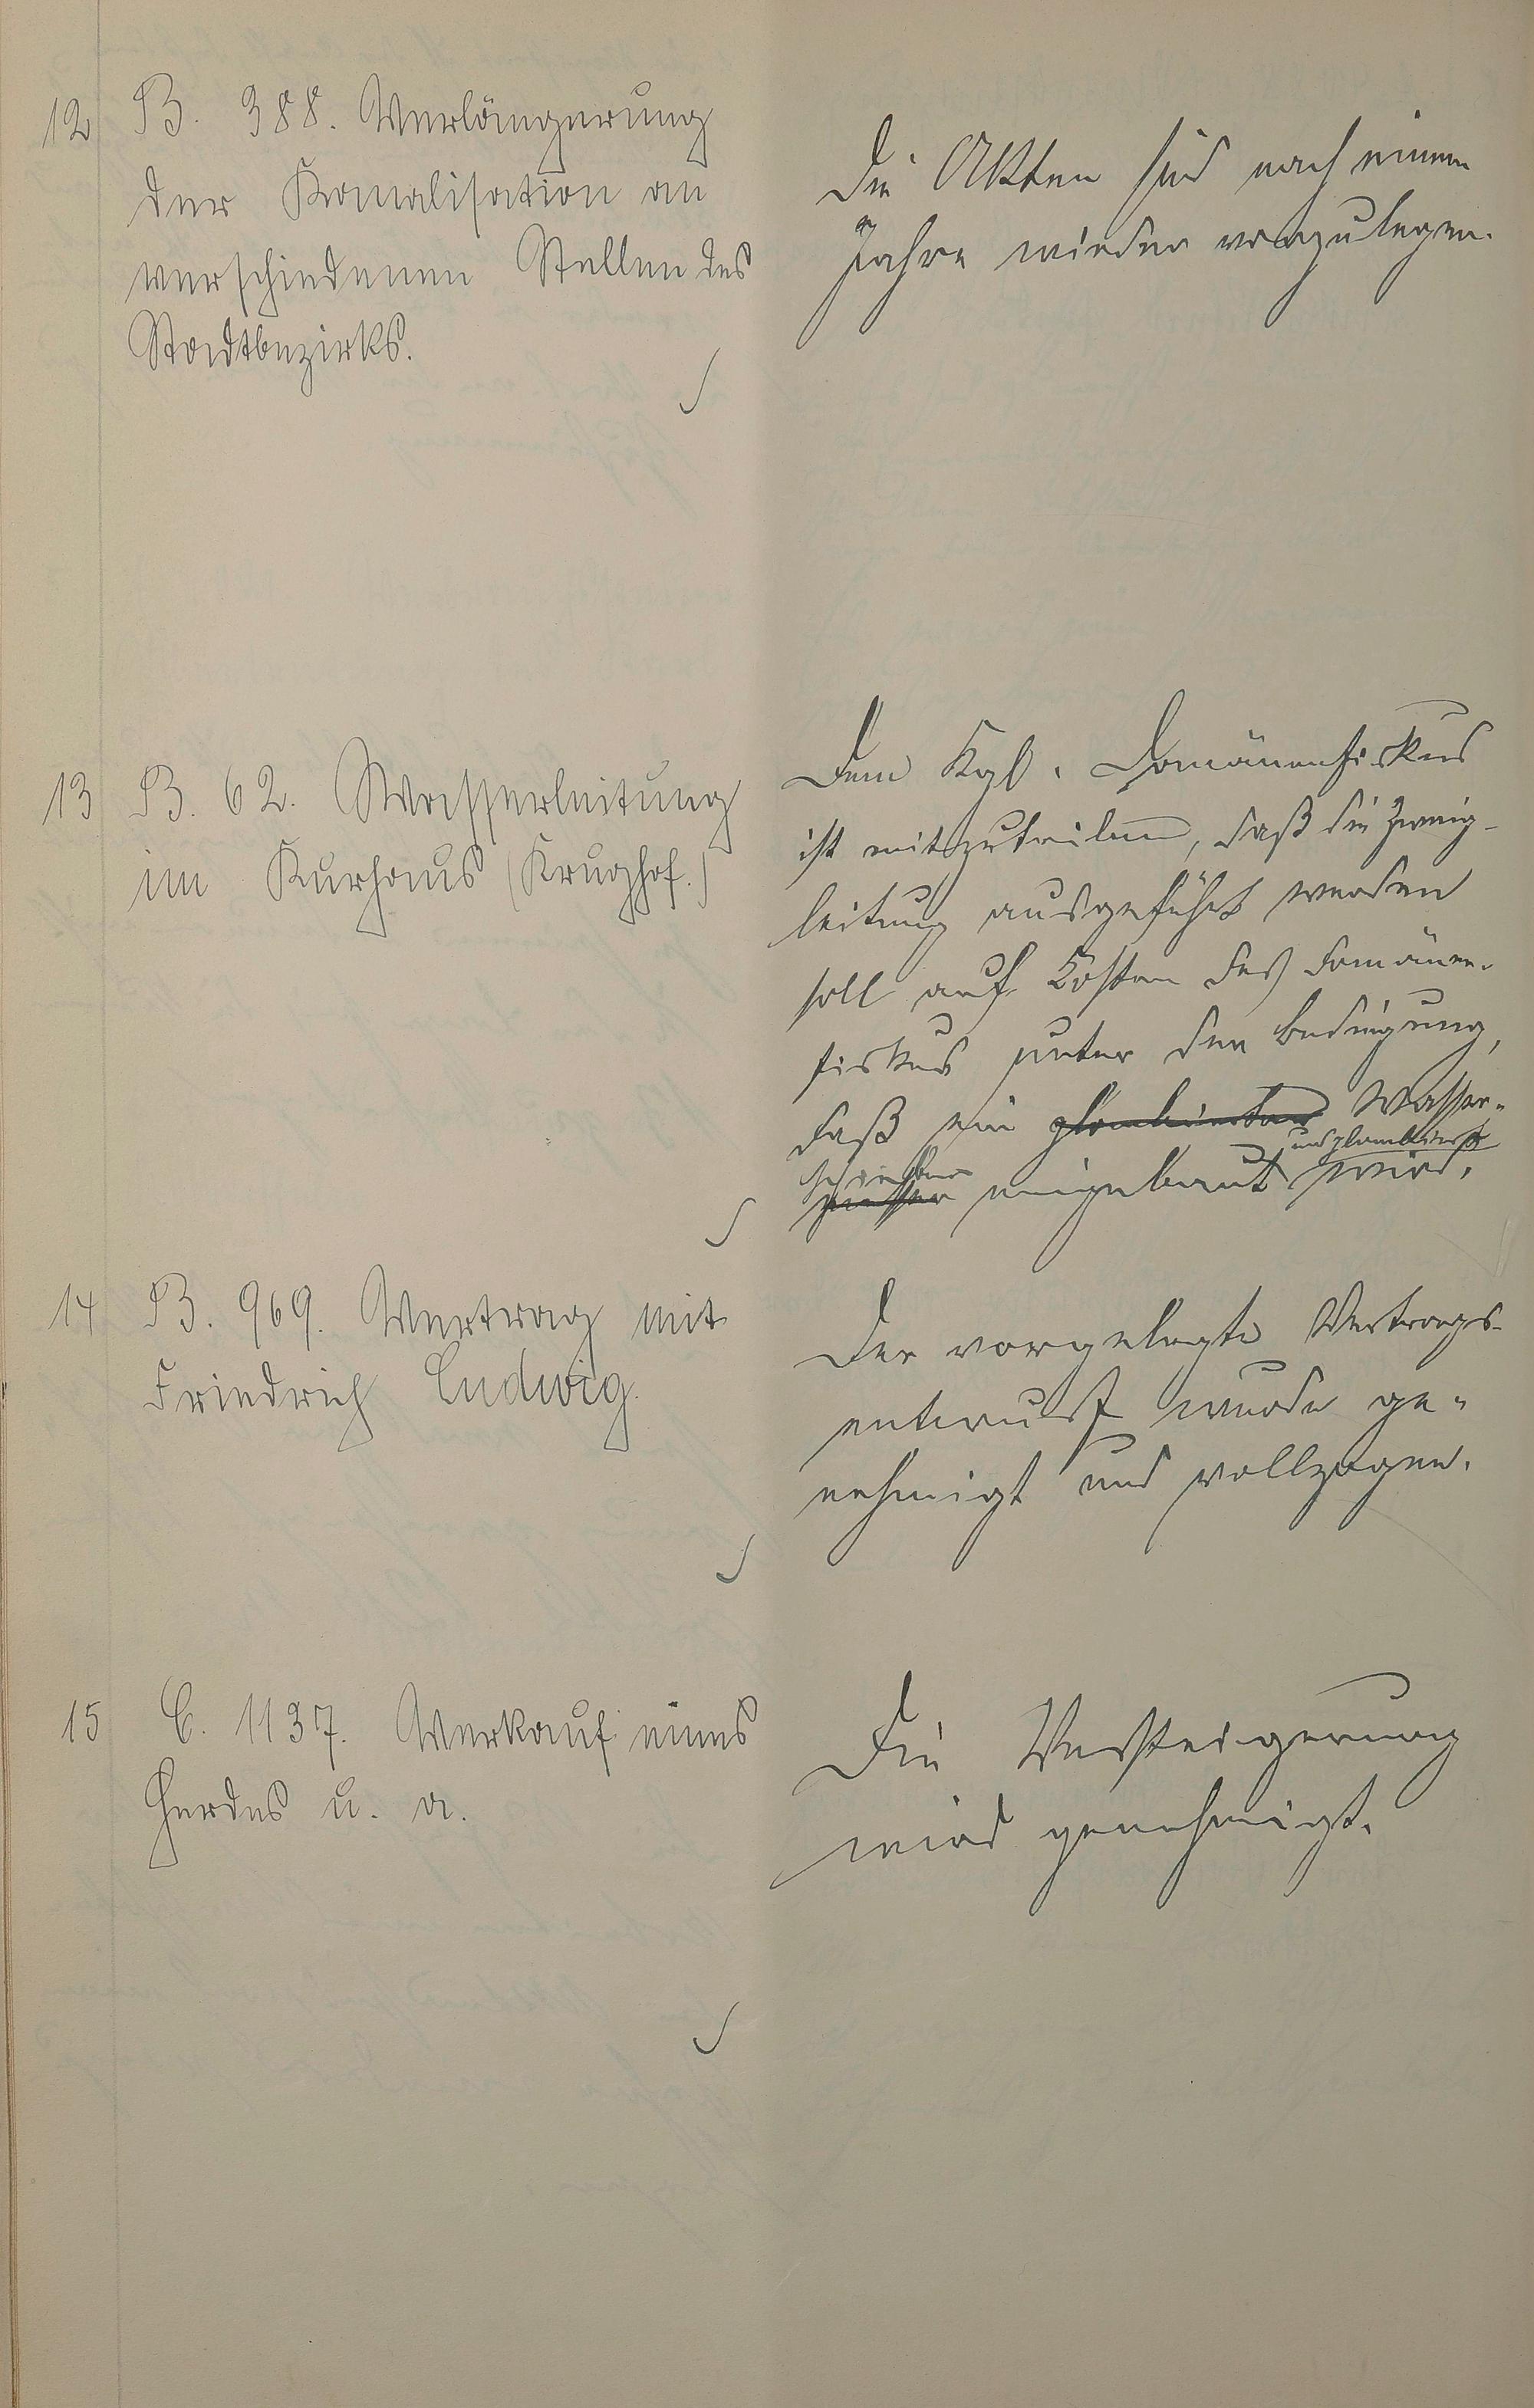 12 B. 388. Verlängerung
der Kanalisation an
verschiedenen Stellen des
Stadtbezirks.
Die Akten sind nach einem
Jahre wieder vorzulegen.
13 B. 62. Wasserleitung
im Kurhaus (Krughof.)
Dem Kgl. Domänenfiskus
ist mitzuteilen, daß die Zweig-
leitung ausgeführt werden
soll auf Kosten des Domänen-
fiskus unter der Bedingung,
daß ein plombierter Wasser-
und plombiert
schieber
messer eingebaut wird.
14 B. 969. Vertrag mit
Friedrich Ludwig.
Der vorgelegte Vertrags-
entwurf wurde ge-
nehmigt und vollzogen.
15 C. 1137. Verkauf eines
Herdes u. a.
Die Versteigerung
wird genehmigt.